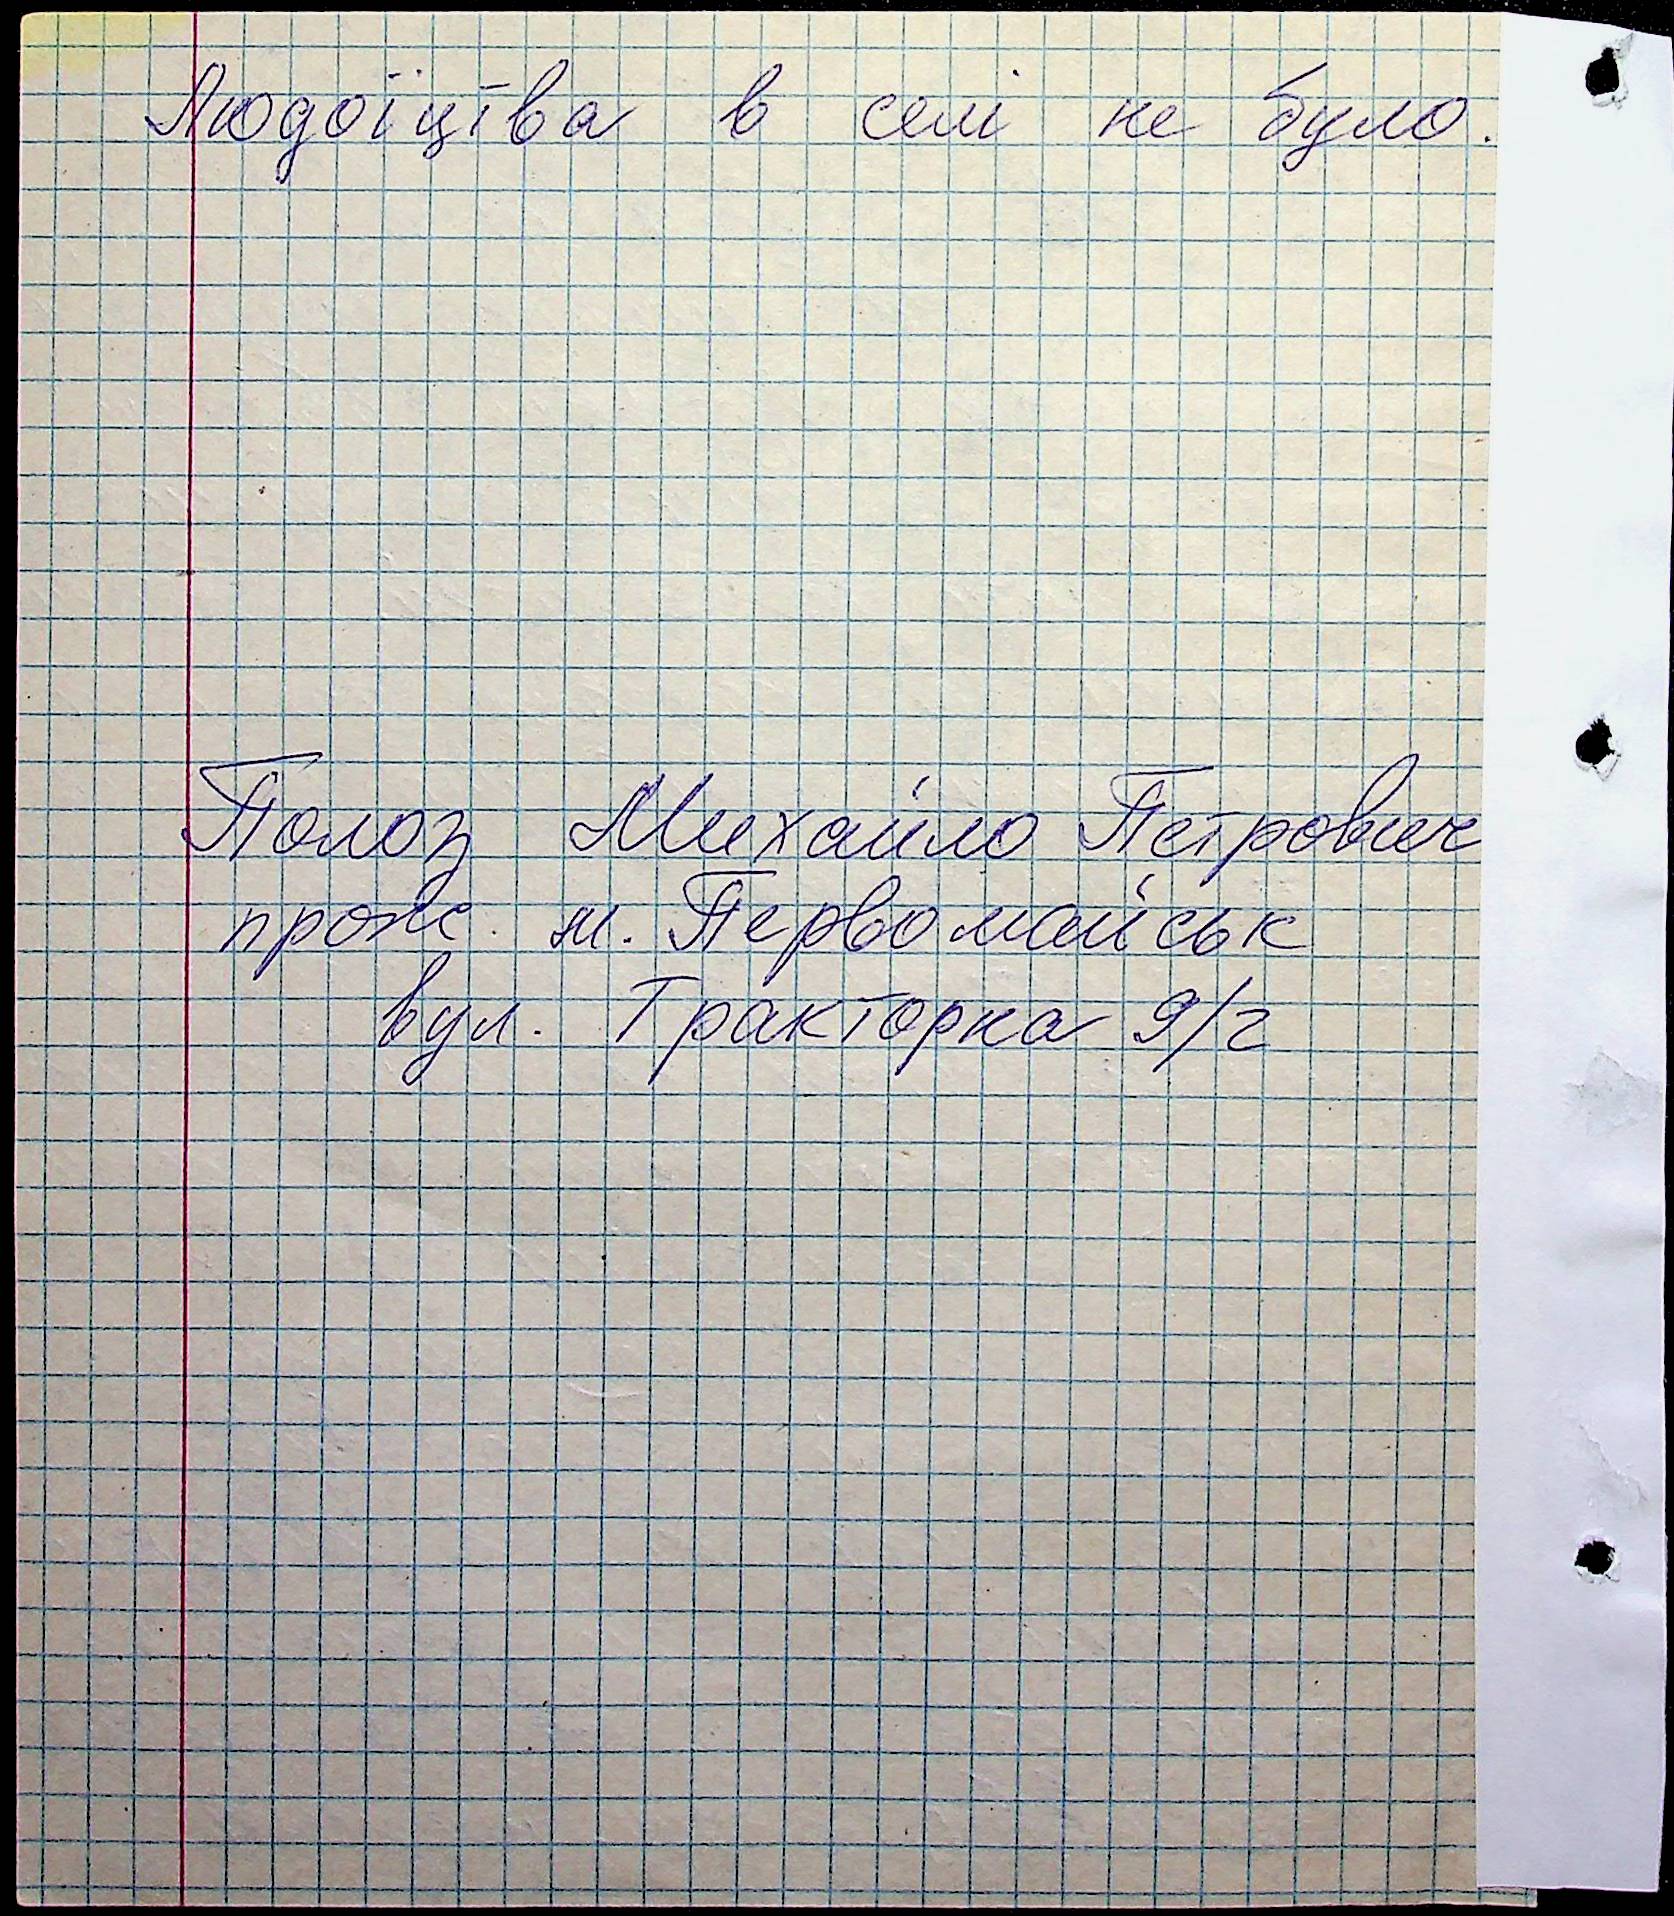 Людоїцтва в селі не було.
Полоз Михайло Петрович
прож. м. Первомайськ
вул. Тракторна 9/2